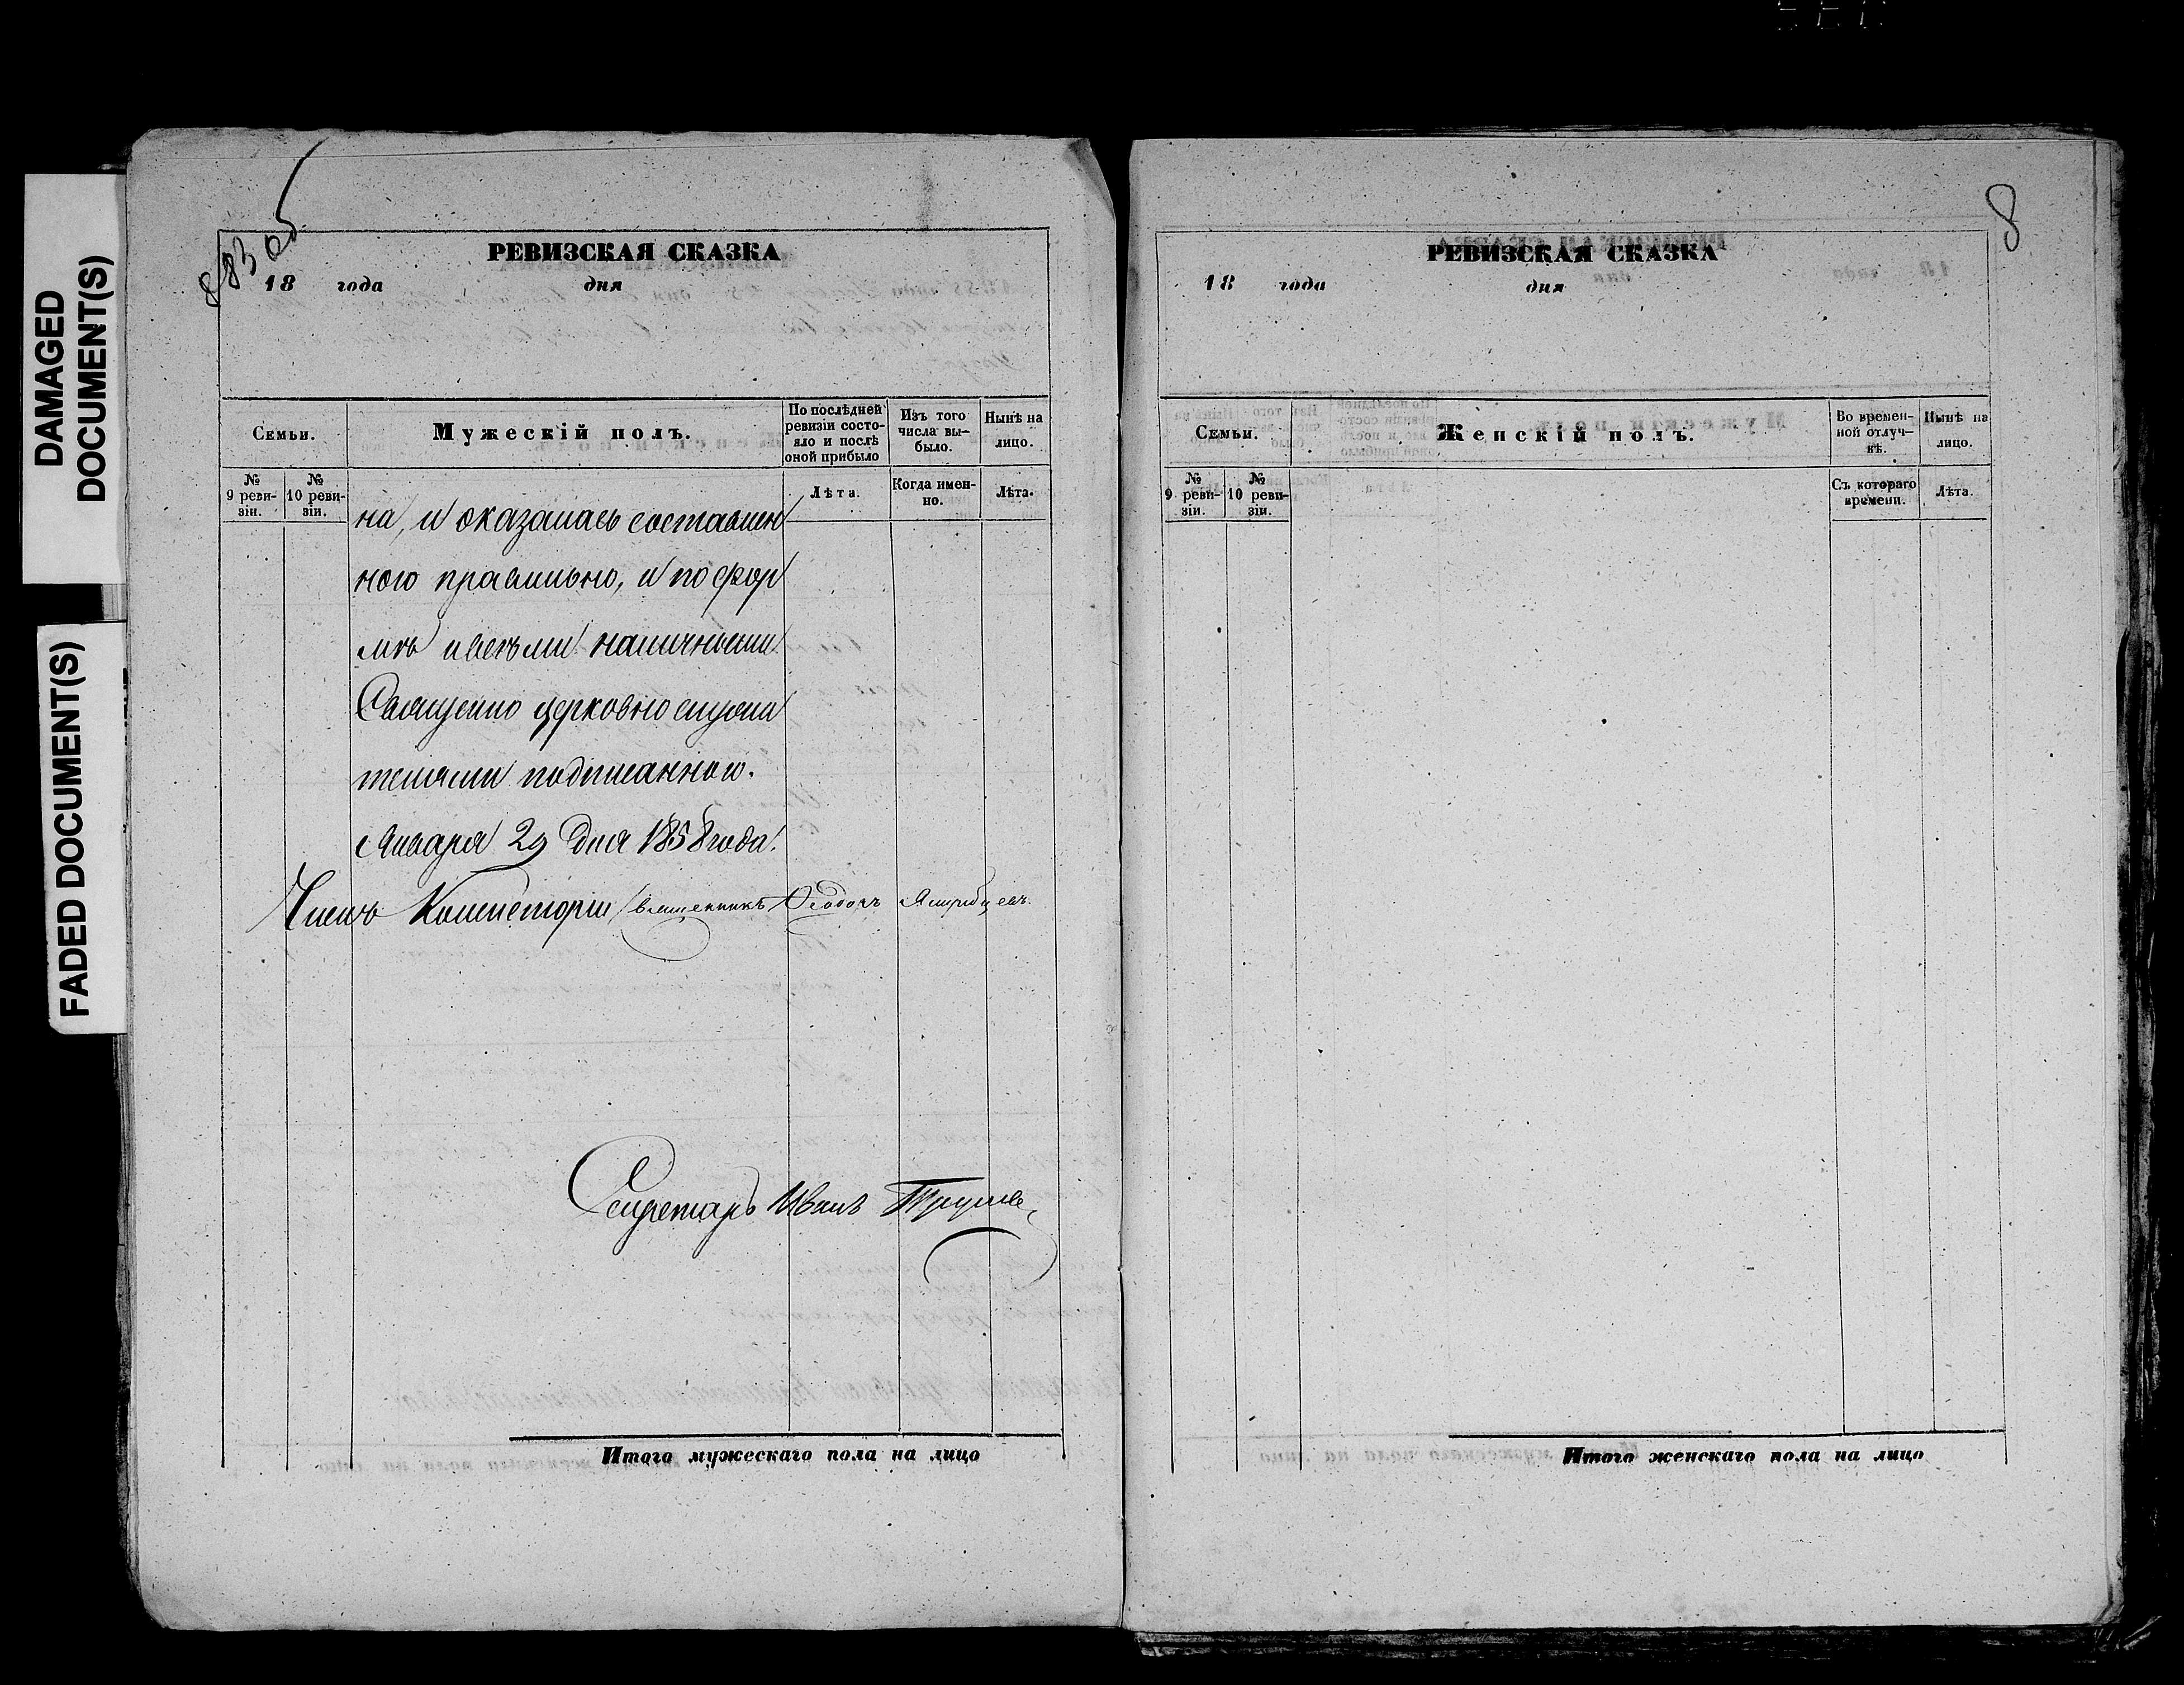 DAMAGED
DOCUMENT(S)
FADED DOCUMENT(S)
883 об
РЕВИЗСКАЯ СКАЗКА
18 года дня
Семьи.
Мужескій полъ.
По послѣдней ревизіи состо-
яло и послѣ
оной прибыло
Изъ того
числа вы-
было.
Нынѣ на
лицо.
№
9 реви-
зіи.
№
10 реви-
зіи.
Лѣта.
Когда имен-
но.
Лѣта.
на, и оказалась составлен
ного правильно, и по фор
мѣ и всѣми наличными
Священно церковно служи
телями подписанного.
Января 29 дня 1858 года.
Членъ Консисторіи Священникъ Ѳеодоръ
Секретарь Иванъ
Итого мужескаго пола на лицо
8
РЕВИЗСКАЯ СКАЗКА
18 года дня
Семьи.
Женскій полъ.
Во времен-
ной отлуч-
кѣ.
Нынѣ на
лицо.
№
9 реви-
зіи.
№
10 реви-
зіи.
Съ котораго
времени.
Лѣта.
Итого женскаго пола на лицо